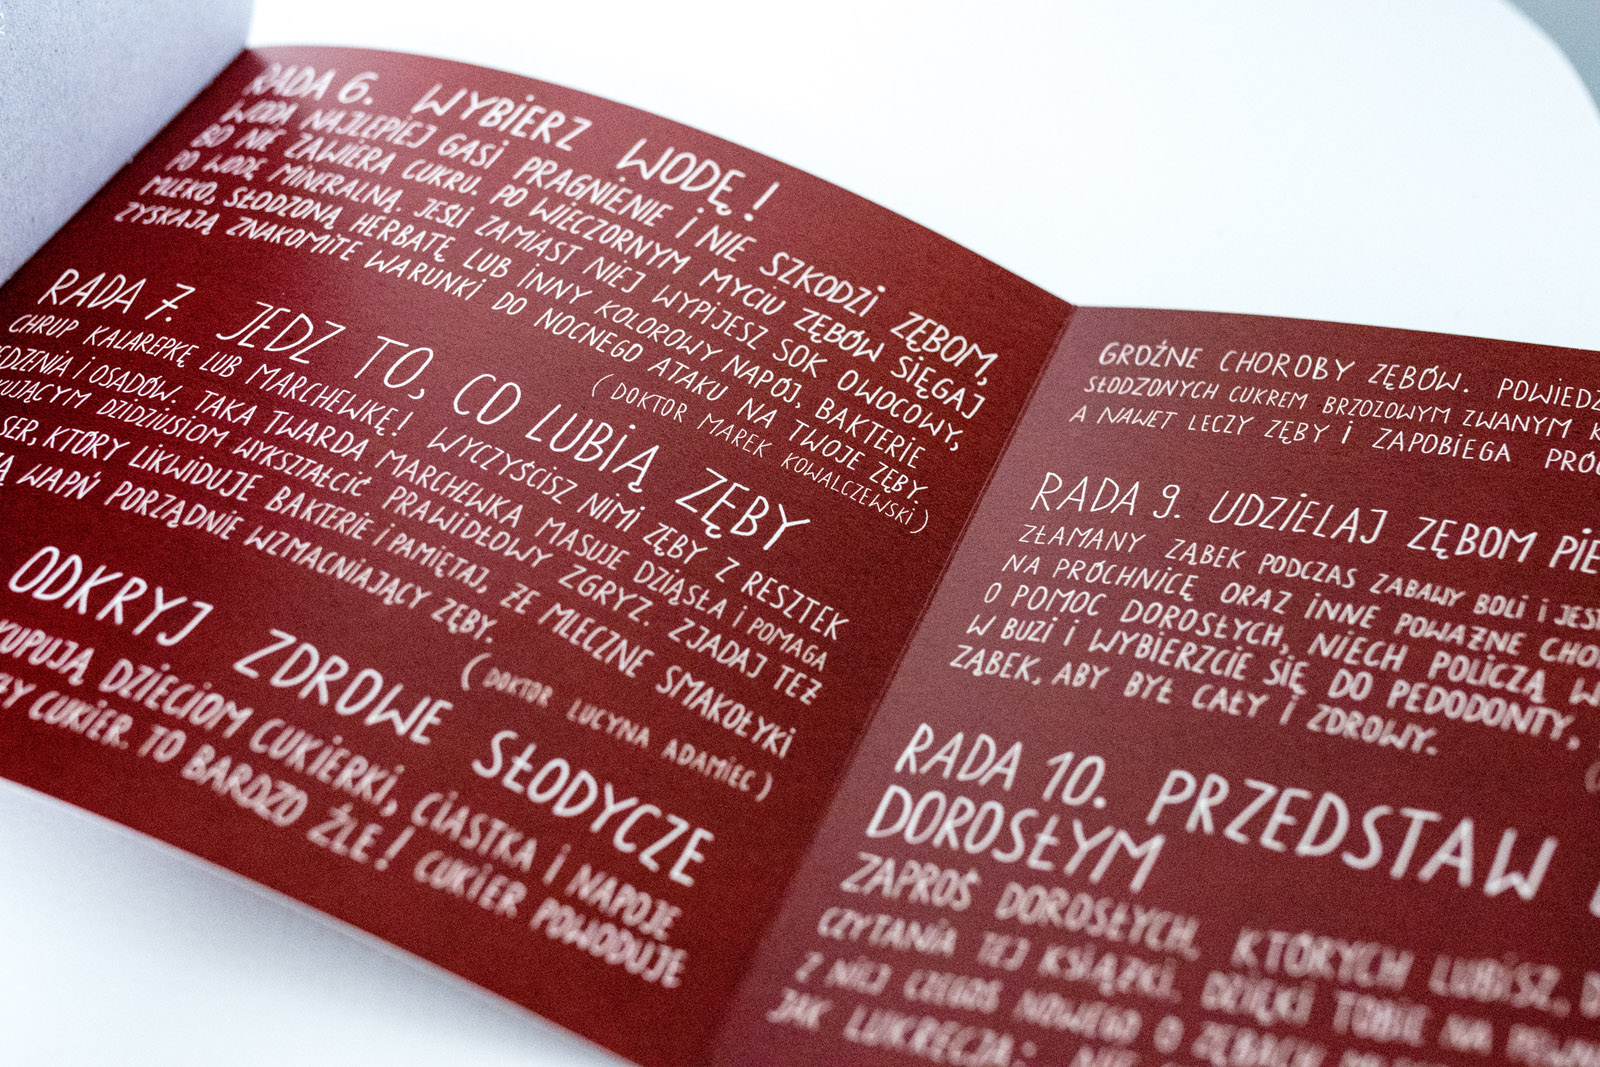 RADA 6. WYBIERZ WODĘ!
WODA NAJLEPIEJ GASI PRAGNIENIE I NIE SZKODZI ZĘBOM,
BO NIE ZAWIERA CUKRU. PO WIECZORNYM MYCIU ZĘBÓW SIĘGAJ
PO WODĘ MINERALNĄ. JEŚLI ZAMIAST NIEJ WYPIJESZ SOK OWOCOWY,
MLEKO, SŁODZONĄ HERBATĘ LUB INNY KOLOROWY NAPÓJ, BAKTERIE
ZYSKAJĄ ZNAKOMITE WARUNKI DO NOCNEGO ATAKU NA TWOJE ZĘBY.
(DOKTOR MAREK KOWALCZEWSKI)
RADA 7. JEDZ TO, CO LUBIĄ ZĘBY
CHRUP KALAREPKĘ LUB MARCHEWKĘ! WYCZYŚCISZ NIMI ZĘBY Z RESZTEK
I OSADÓW. TAKA TWARDA MARCHEWKA MASUJE DZIĄSŁA I POMAGA
DZIDZIUSIOM WYKSZTAŁCIĆ PRAWIDŁOWY ZGRYZ. ZJADAJ TEŻ
SER, KTÓRY LIKWIDUJE BAKTERIE I PAMIĘTAJ, ŻE MLECZNE SMAKOŁYKI
WAPŃ PORZĄDNIE WZMACNIAJĄCY ZĘBY.
(DOKTOR LUCYNA ADAMIEC)
ODKRYJ ZDROWE SŁODYCZE
KUPUJĄ DZIECIOM CUKIERKI, CIASTKA I NAPOJE
CUKIER. TO BARDZO ŹLE! CUKIER POWODUJE
GROŹNE CHOROBY ZĘBÓW.
SŁODZONYCH CUKREM BRZOZOWYM ZWANYM
A NAWET LECZY ZĘBY I ZAPOBIEGA
RADA 9. UDZIELAJ ZĘBOM
ZŁAMANY ZĄBEK PODCZAS ZABAWY BOLI I
NA PRÓCHNICĘ ORAZ INNE POWAŻNE
O POMOC DOROSŁYCH, NIECH POLICZĄ
W BUZI I WYBIERZCIE SIĘ DO PEDODONTY,
ZĄBEK, ABY BYŁ CAŁY I ZDROWY.
RADA 10. PRZEDSTAW
DOROSŁYM
ZAPROŚ DOROSŁYCH, KTÓRYCH LUBISZ,
CZYTANIA TEJ KSIĄŻKI. DZIĘKI TOBIE NA
Z NIEJ CZEGOŚ NOWEGO O ZĘBACH
JAK LUKRECJA: